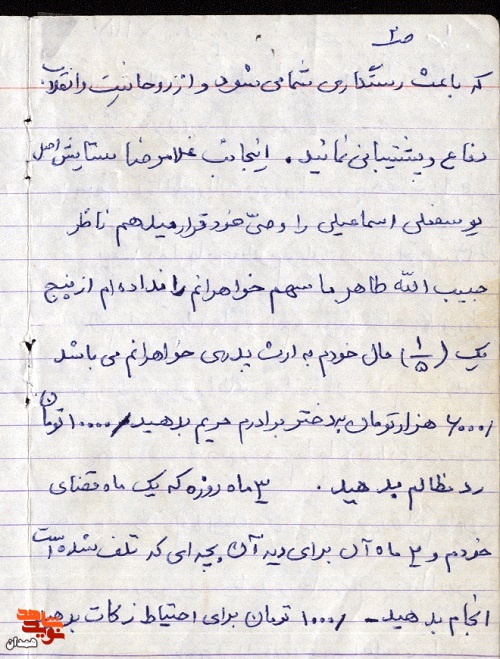 ص۲
که باعث رستگاری شما می شود و از روحانیت و انقلاب
دفاع و پشتیبانی نمائید. اینجانب غلامرضا ستایش اصل
یوسفعلی اسماعیلی را وصیّ خود قرار میدهم ناظر
حبیب الله طاهر ما سهم خواهرانم را نداده ام از پنج
یک (۱/۵) مال خودم به ارث پدری خواهرانم می باشد
۶۰۰۰/ هزار تومان به دختر برادرم مریم بدهید ۱۰۰۰۰/ تومان
رد مظالم بدهید. ۳ ماه روزه که یک ماه قضای
خودم و ۲ ماه آن برای دیه آن بچه ای که تلف شده است
انجام بدهید - ۱۰۰۰/ تومان برای احتیاط زکات بدهید
نوید شاهد
همدان